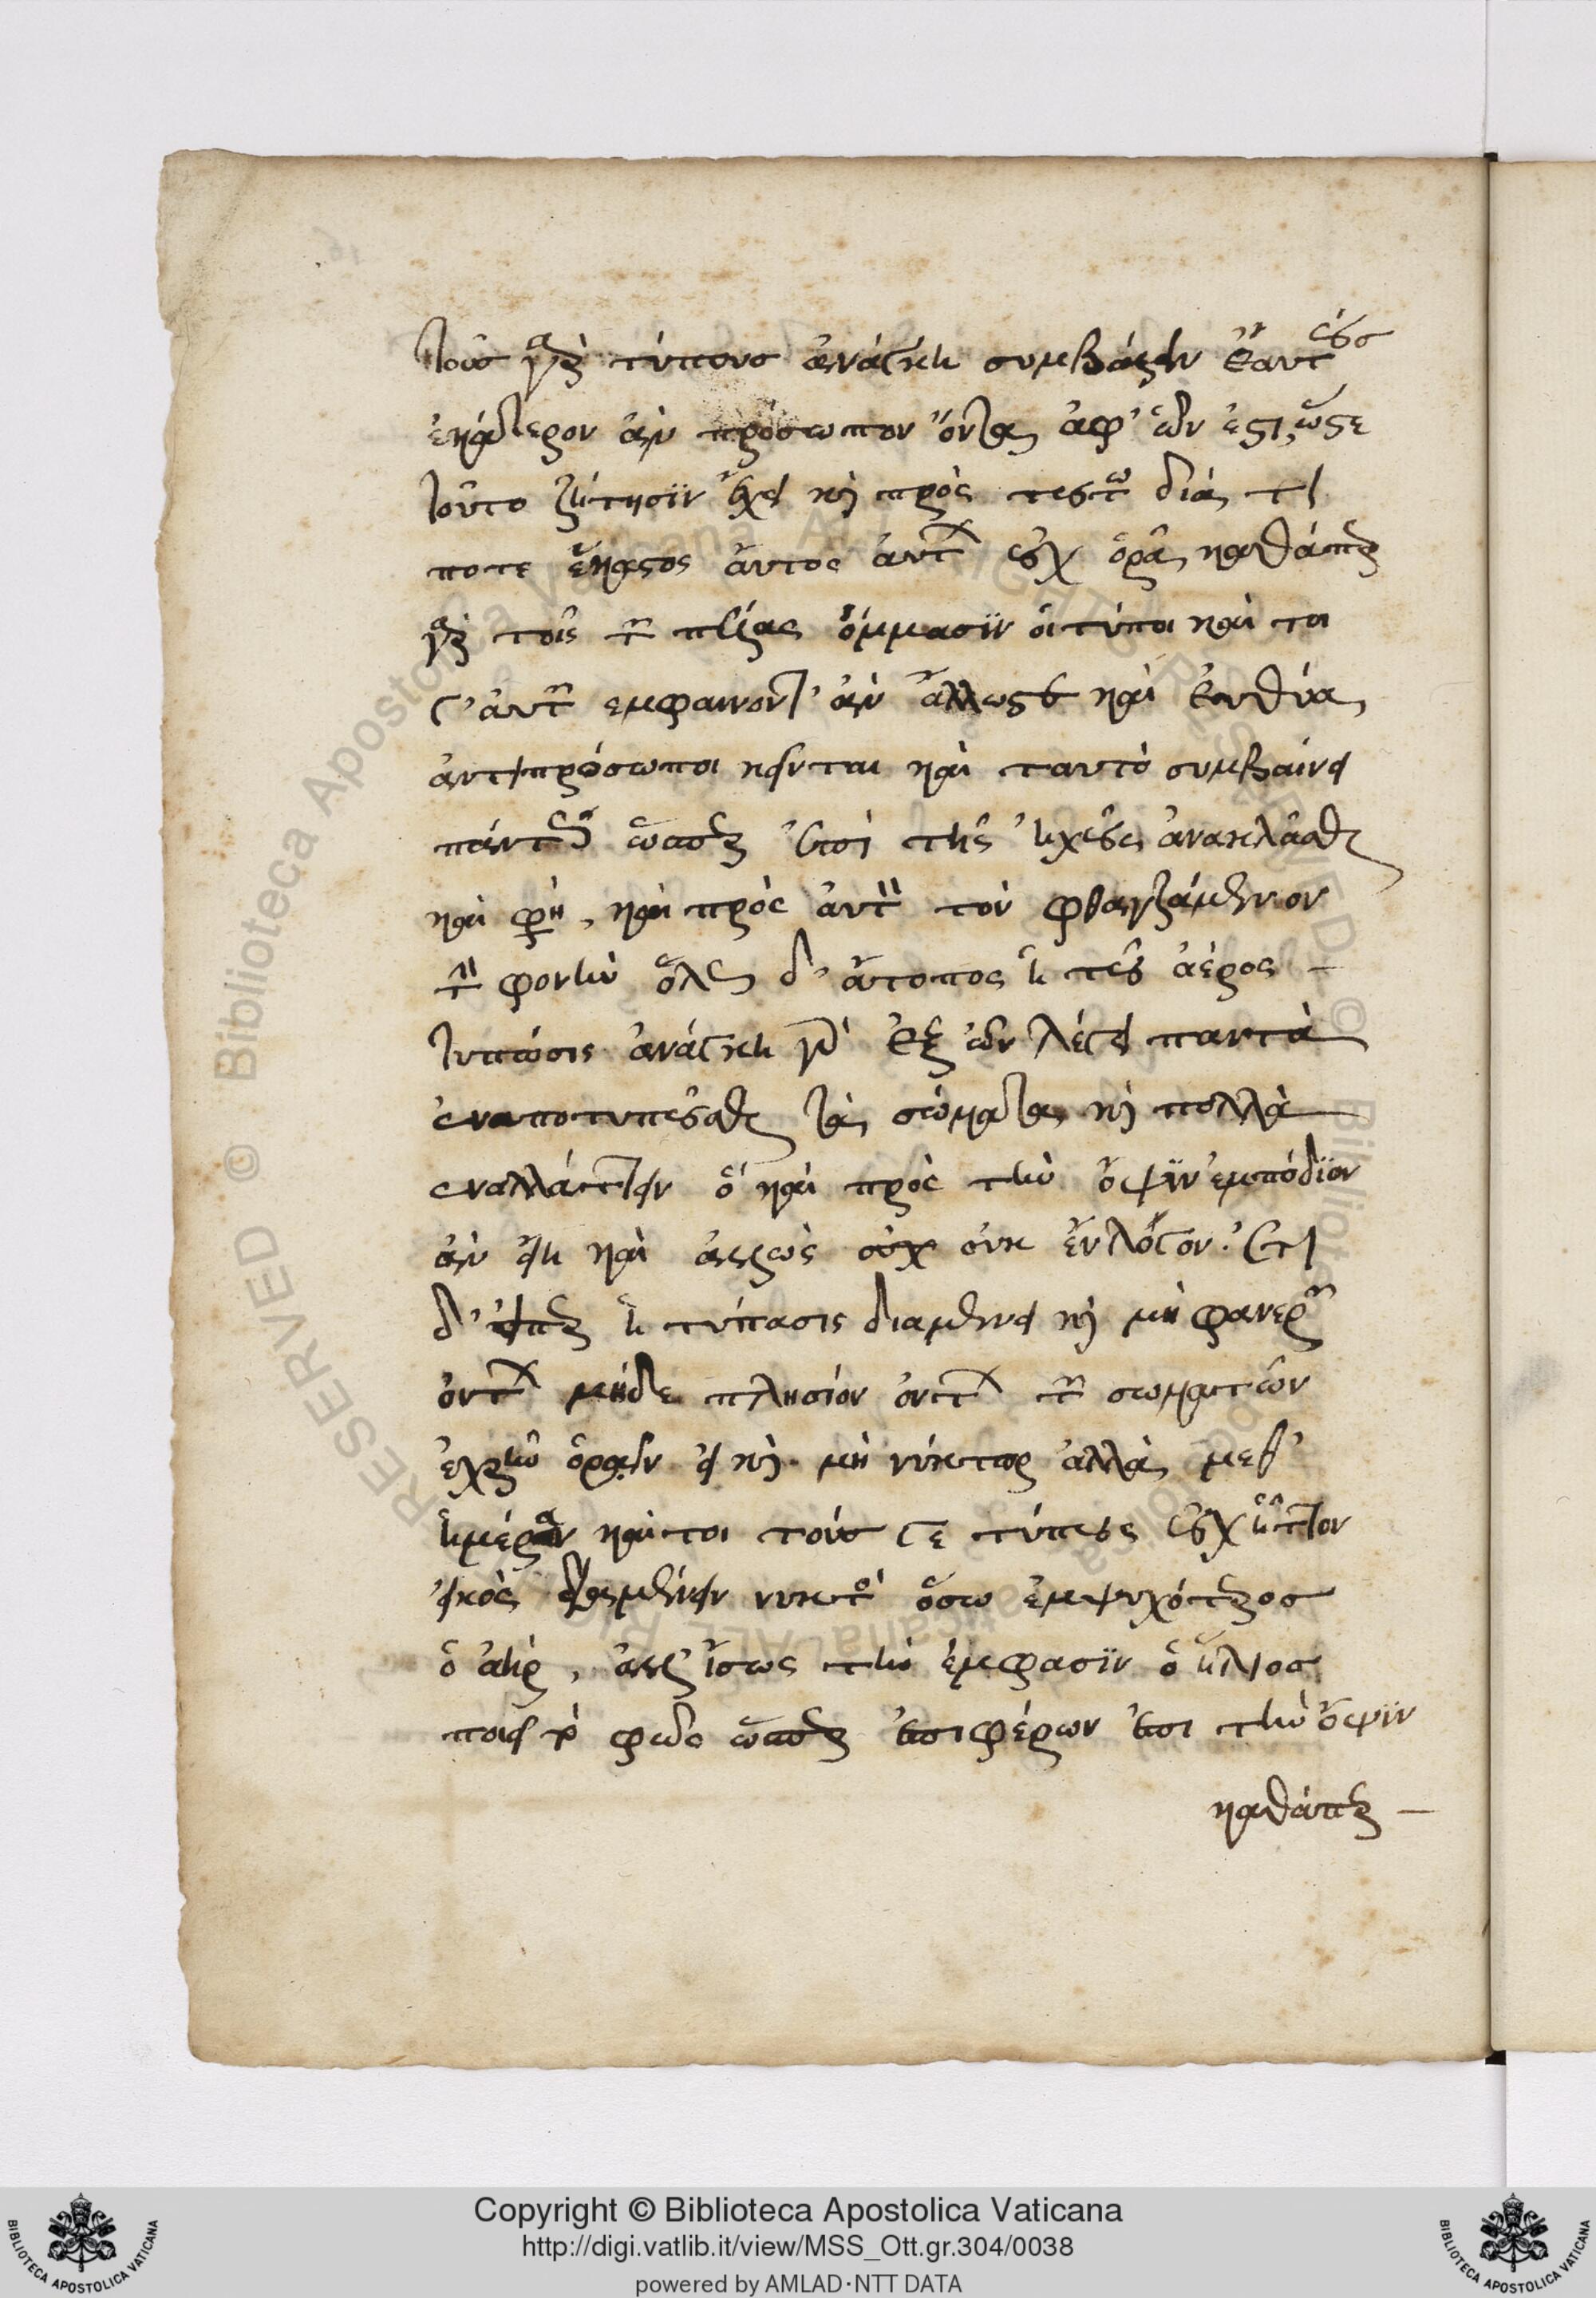 τοὺς γὰρ τύπους ἀνάγκη συμβάλλειν ἑαυτοῖς
ἑκάτερον ἀν πρόσωπον ὄντα ἀφ' ὧν ἐστι, ὥστε
τοῦτο ζήτησϊν ἔχει καὶ πρὸς τούτω διὰ τί
ποτε ἕκαστος αὐτὸς αὑτὸν οὐχ ὁρᾶ καθάπερ
γὰρ τοῖς τῶν πέλας ὄμμασϊν οἱ τύποι καὶ τοι
γ' αὐτῶν εμφαινοντ' ἀν ἄλλως τε καὶ εὐθύα
ἀντιπρόσωποι κεῖνται καὶ ταυτὸ συμβαίνει
πάντων ὥσπερ ἐπὶ τῆς ἠχοῦς ἀνακλᾶσθαι
καὶ φησὶ, καὶ πρὸς αὐτὴν τὸν φθεγξάμενον
τὴν φονὴν ὅλως δ' ἄτοπος ἡ τοῦ ἀέρος
τυπώσις ἀνάγκη γὰρ ἐξ ὧν λέγει παντὰ
ἐναποτυποῦσθαι τὰ σώματα καὶ πολλὰ
εναλλάττειν ὃ καὶ πρὸς τὴν ὄψϊν ἐμπόδϊον
ἀν εἴη καὶ ἄλλως οὐκ εὔλογον. ἔτι
δ' εἴπερ ἡ τύπασις διαμένει καὶ μὴ φανερῶν
ὄντων μήδε πλησίον ὀντων τῶν σωματῶν
ἐχρῆν ὁρᾶν εἰ καὶ μὴ νύκτωρ ἀλλὰ μεθ'
ἡμέραν καίτοι τούς γε τύπους οὐχ ἧττον
εἰκὸς διαμένειν νυκτὸς ὅσω ἐμψυχότερος
ὁ ἀὴρ, ἀλλ' ἴσως τὴν ἔμφασϊν ὁ ἥλιος
ποιεῖ τὸ φῶς ὥσπερ ἐπιφέρων ἐπὶ τὴν ὄψϊν
καθάπερ
Copyright © Biblioteca Apostolica Vaticana
http://digi.vatlib.it/view/MSS_Ott.gr.304/0038
powered by AMLAD·NTT DATA